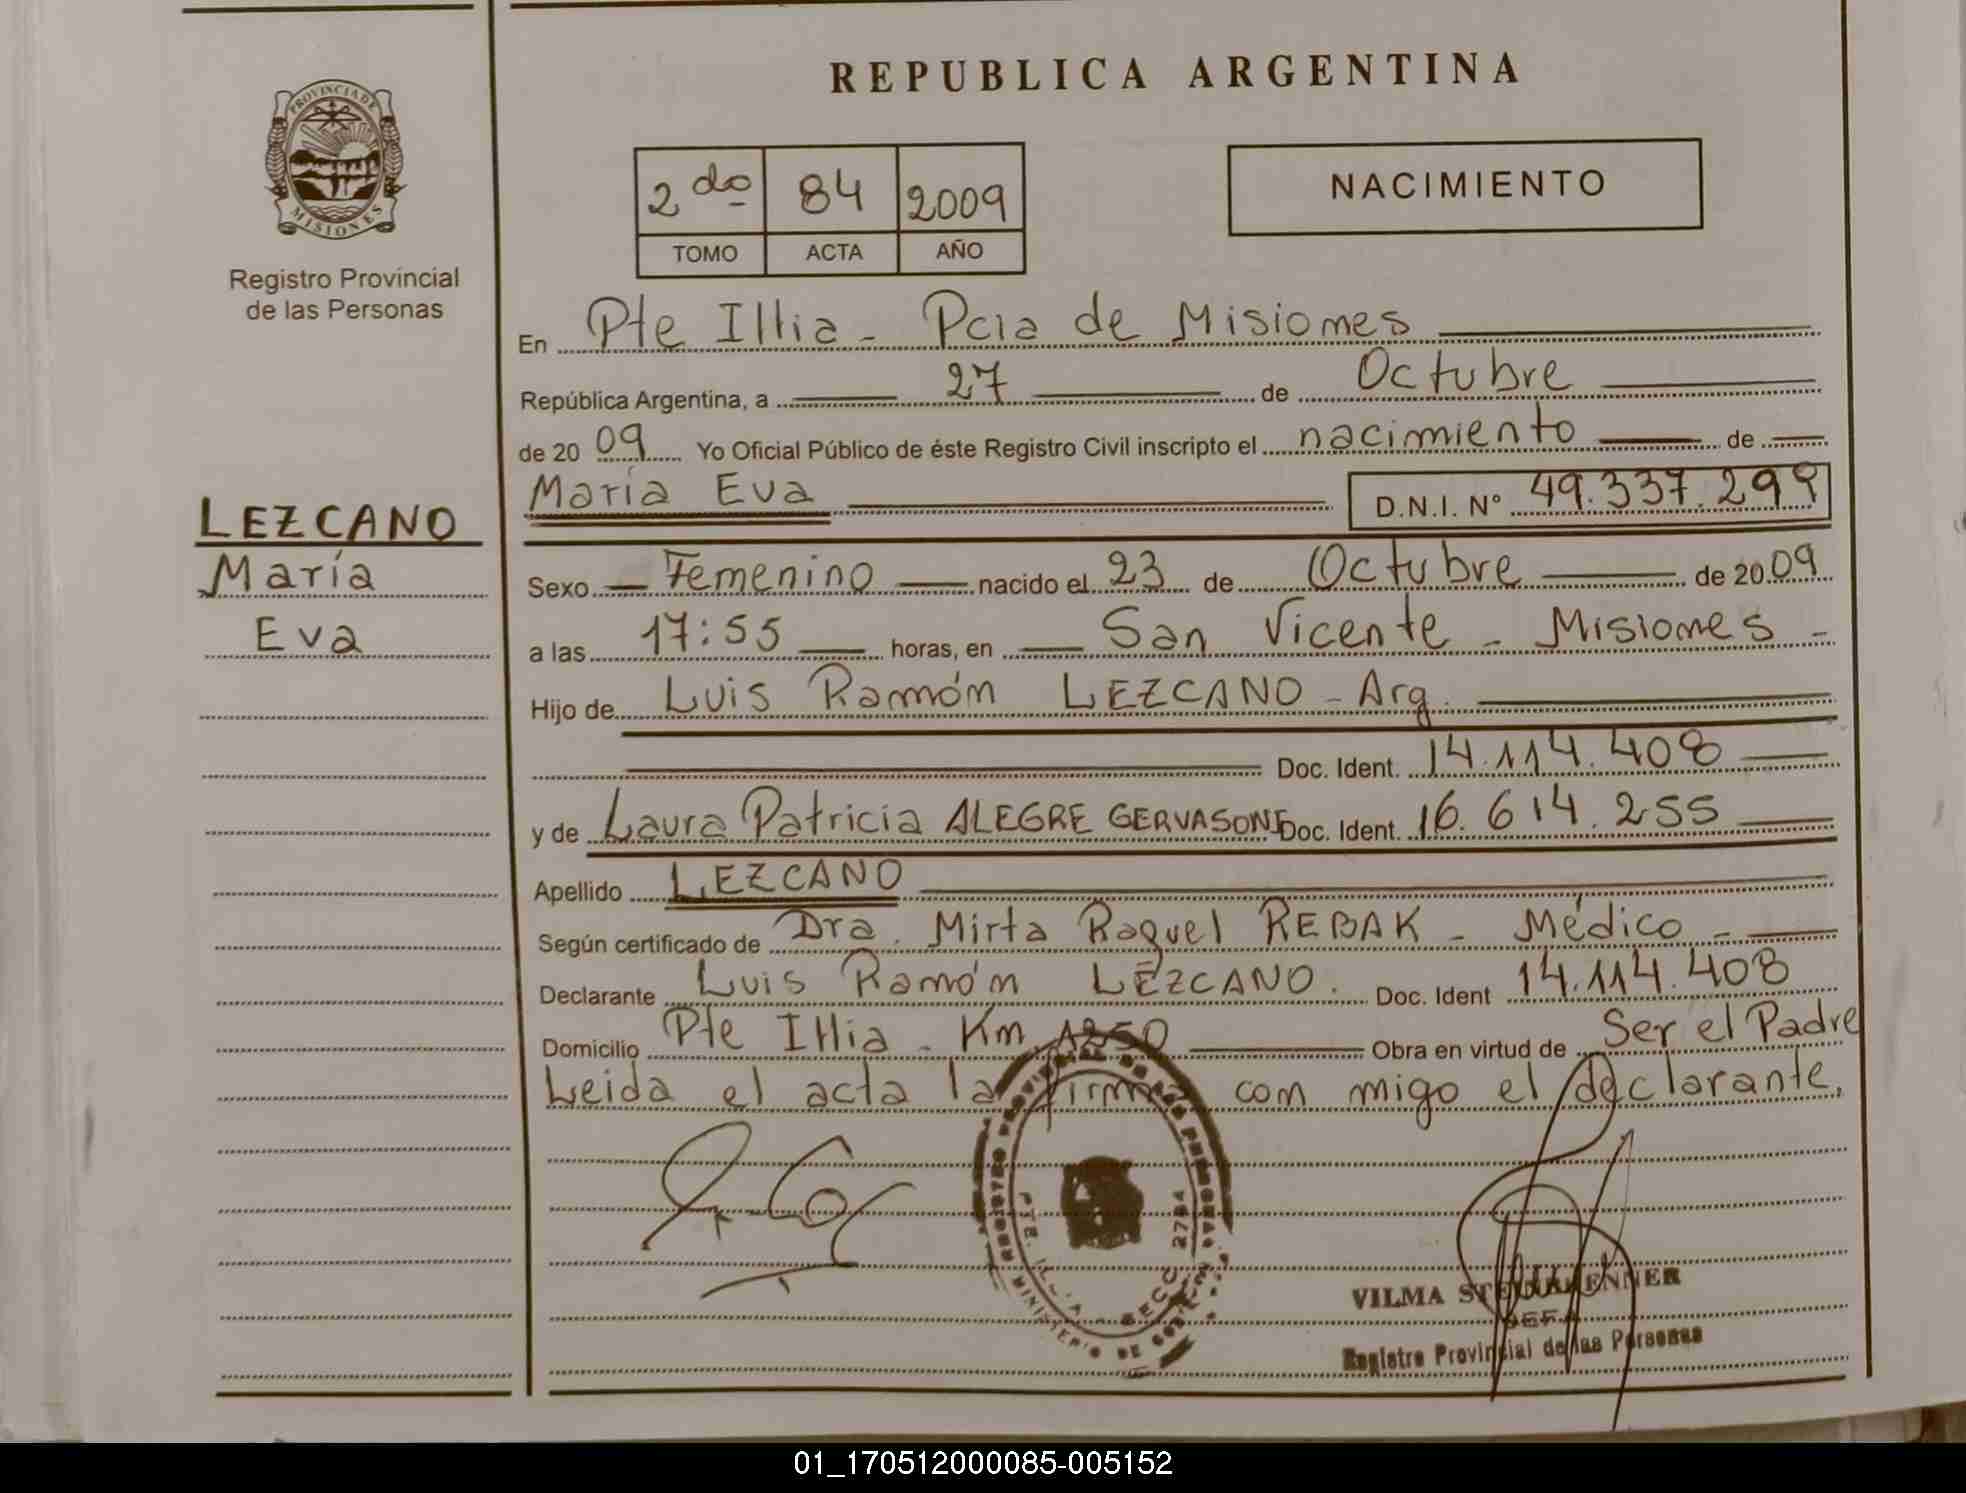 REPUBLICA ARGENTINA
PROVINCIA DE
MISIONES
Registro Provincial
de las Personas
2do 84 2009
TOMO ACTA AÑO
NACIMIENTO
En Pte Illia - Pcia de Misiones
República Argentina, a 27 de Octubre
de 2009 Yo Oficial Público de éste Registro Civil inscripto el nacimiento de
María Eva D.N.I. N° 49.337.299
LEZCANO
María
Eva
Sexo Femenino nacido el 23 de Octubre de 2009
a las 17:55 horas, en San Vicente - Misiones -
Hijo de Luis Ramón LEZCANO - Arg.
Doc. Ident. 14.114.408
y de Laura Patricia ALEGRE GERVASONI Doc. Ident. 16.614.255
Apellido LEZCANO
Según certificado de Dra. Mirta Raquel REBAK - Médico -
Declarante Luis Ramón LEZCANO. Doc. Ident 14.114.408
Domicilio Pte Illia - Km 1250 Obra en virtud de Ser el Padre
Leida el acta la firma con migo el declarante.
REGISTRO PROVINCIAL DE LAS PERSONAS
PTE. ILLIA - SECC. 2784
MINISTERIO DE GOBIERNO
VILMA
JEFA
Registro Provincial de las Personas
01_170512000085-005152